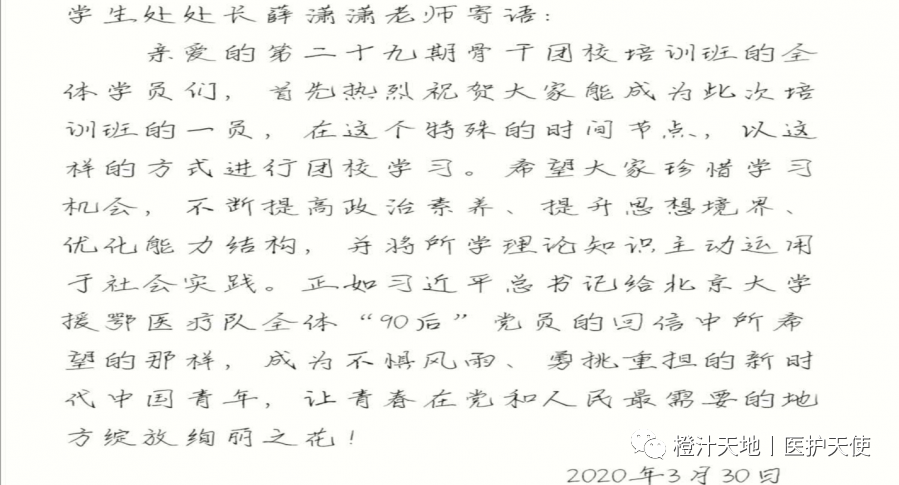 学生处处长薛潇潇老师寄语：
亲爱的第二十九期骨干团校培训班的全
体学员们，首先热烈祝贺大家能成为此次培
训班的一员，在这个特殊的时间节点，以这
样的方式进行团校学习。希望大家珍惜学习
机会，不断提高政治素养、提升思想境界、
优化能力结构，并将所学理论知识主动运用
于社会实践。正如习近平总书记给北京大学
援鄂医疗队全体“90后”党员的回信中所希
望的那样，成为不惧风雨、勇挑重担的新时
代中国青年，让青春在党和人民最需要的地
方绽放绚丽之花！
橙汁天地丨医护天使
2020年3月30日